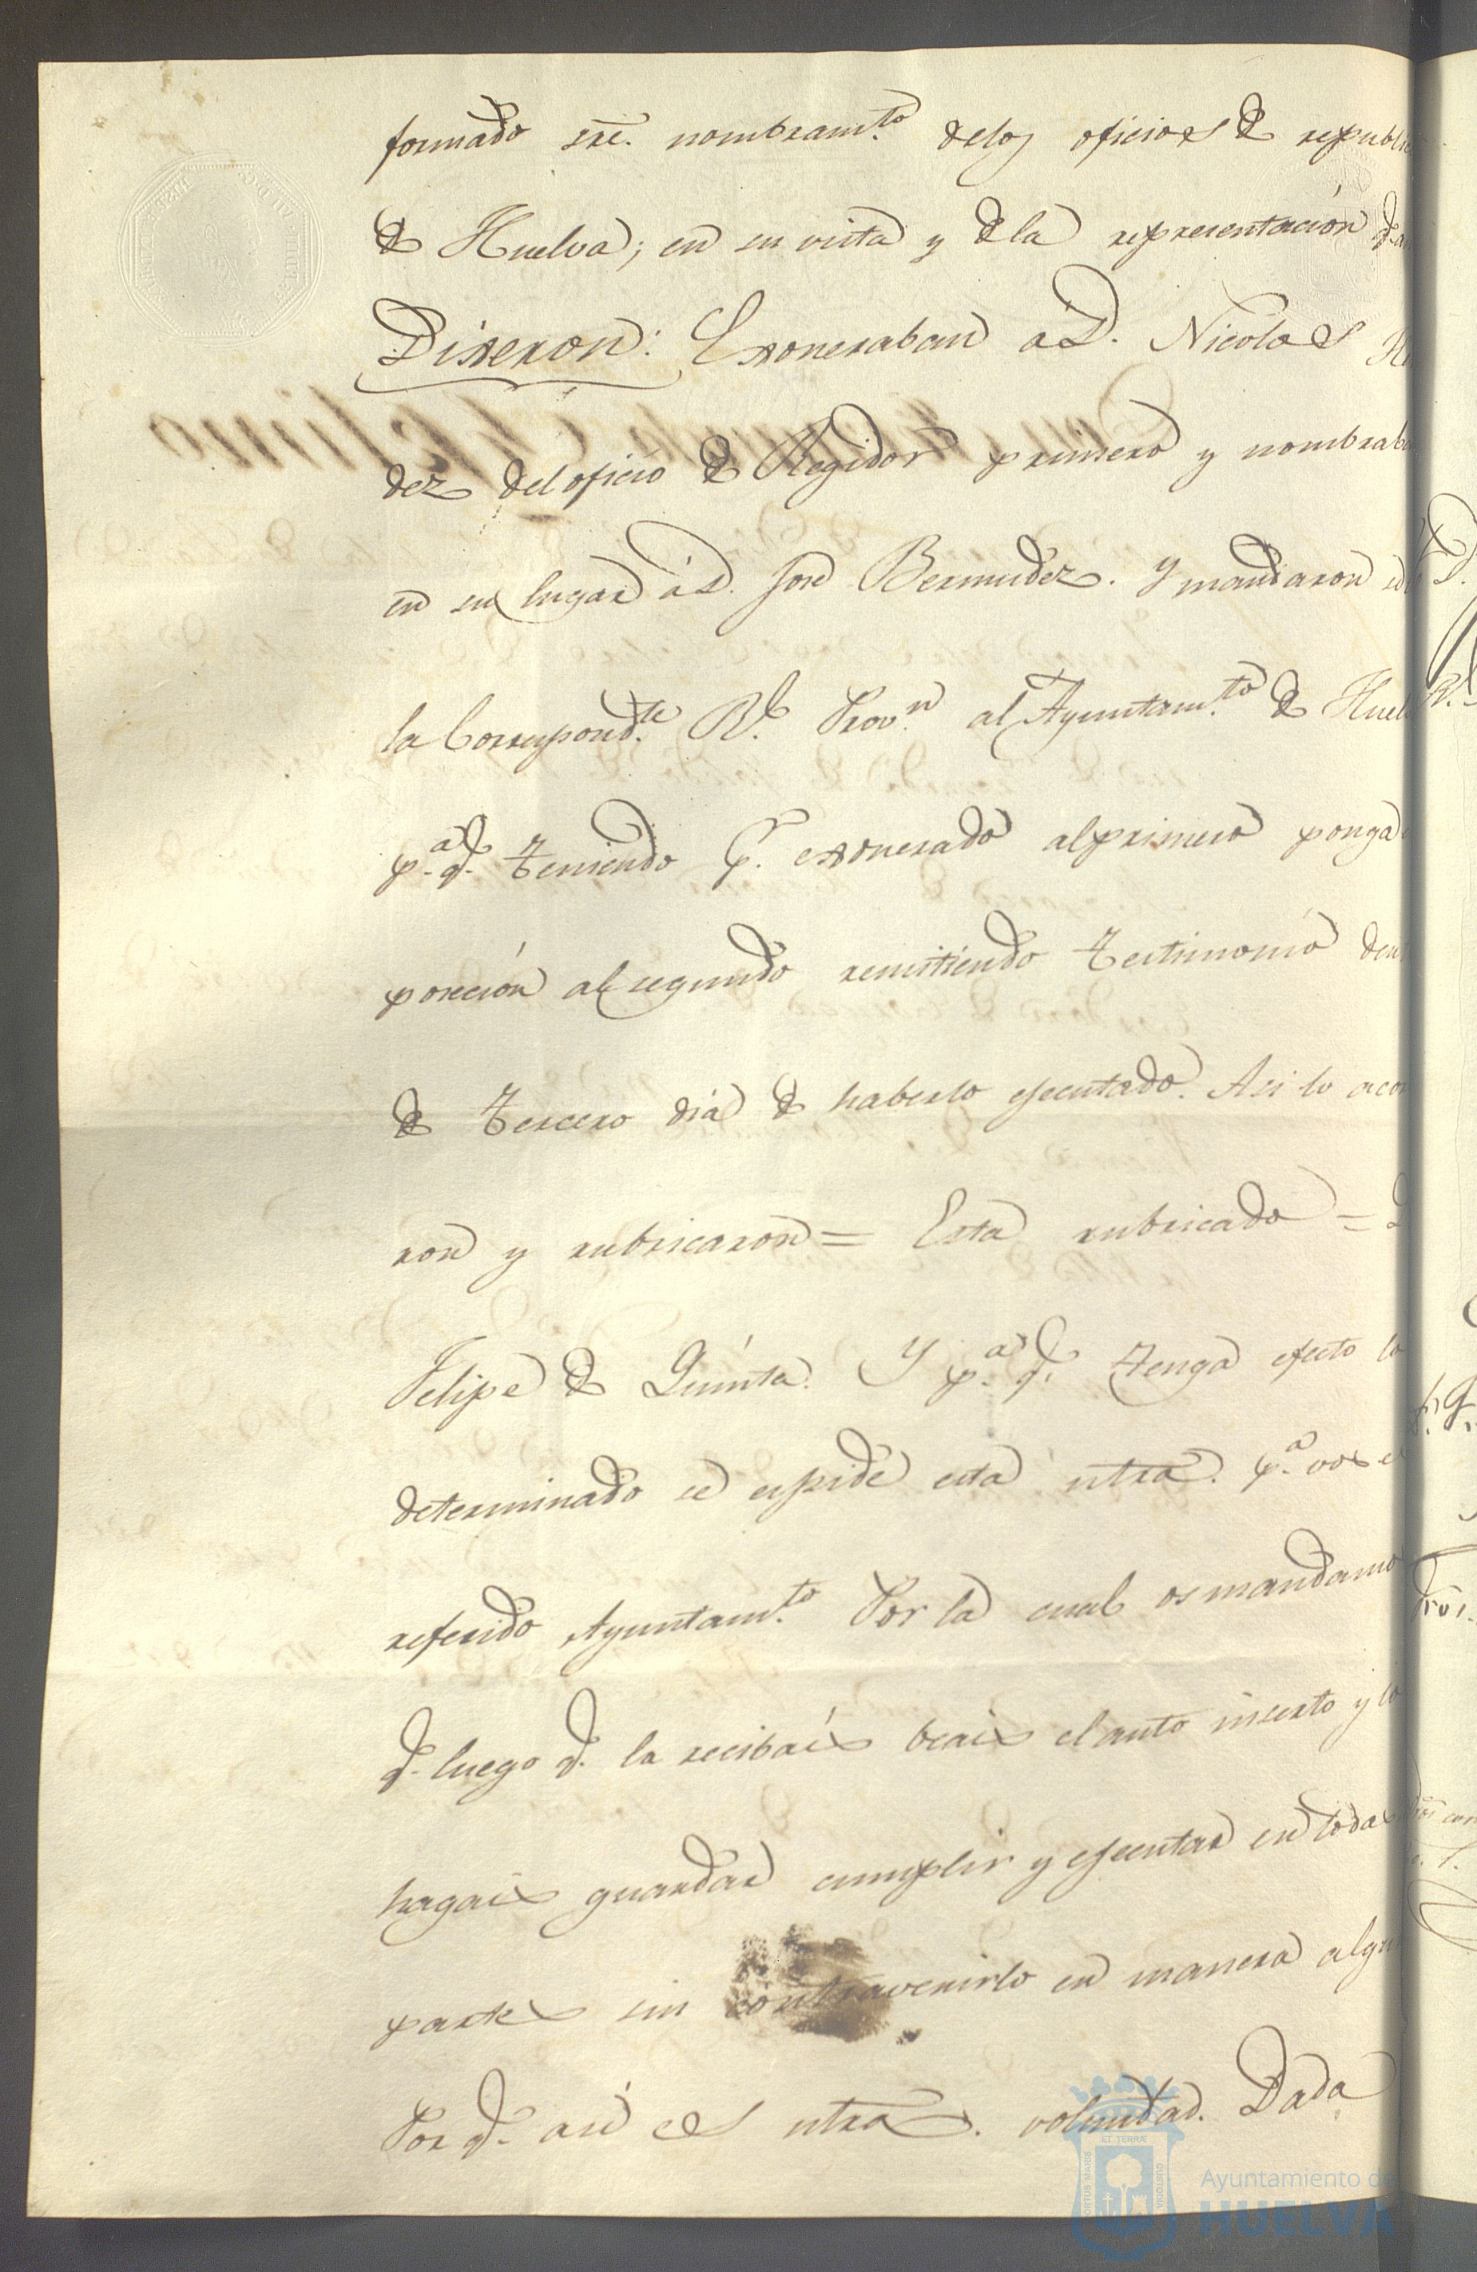 formado sre. nombram.to delos oficios de republi
de Huelva; en su vista y de la representación
Dixeron: Exoneraban a D. Nicolas
dez del oficio de Regidor primero y nombrab
en su lugar á D. José Bermudez. Y mandaron
la Correspond.te R.l Prov.n al Ayuntam.to de Huel
p.a q.e teniendo p.r exonerado al primero ponga
poseción al segundo remitiendo testimonio den
de tercero día de haberlo ejecutado. Asi lo acor
ron y rubricaron = Esta rubricado =
Felipe de Quinta. Y p.a q.e tenga efecto lo
determinado se espide esta ntra. p.a vos el
referido Ayuntam.to Por la cual os mandamo
q.e luego q.e la recibais beais el auto inserto y lo
hagais guardar cumplir y ejecutar en todas
partes sin contravenirlo en manera algu
Por q.e así es ntra. voluntad. Dada
PORTUS MARIS ET TERRÆ CUSTODIA
Ayuntamiento de
HUELVA